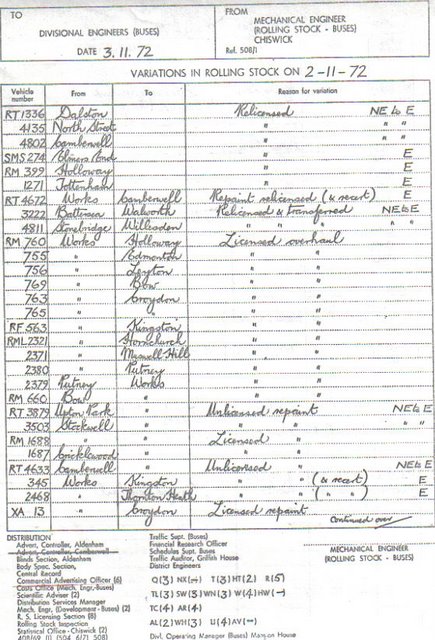 TO
DIVISIONAL ENGINEERS (BUSES)
DATE 3.11.72
FROM
MECHANICAL ENGINEER
(ROLLING STOCK - BUSES)
CHISWICK
Ref. 508/1
VARIATIONS IN ROLLING STOCK ON 2-11-72
Vehicle number From To Reason for variation
RT 1336 Dalston Relicensed NE to E
4135 North Street " " "
4802 Camberwell " " "
SMS 274 Elmers End " E
RM 399 Holloway " E
1271 Tottenham " E
RT 4672 Works Camberwell Repaint relicensed (& recert) E
3222 Battersea Walworth Relicensed & transferred NE to E
4811 Stonebridge Willesden " " " "
RM 760 Works Holloway Licensed overhaul
755 " Edmonton " "
756 " Leyton " "
769 " Bow " "
763 " Croydon " "
765 " " " "
RF 563 " Kingston " "
RML 2321 " Hornchurch " "
2371 " Muswell Hill " "
2380 " Putney " "
2379 Putney Works " "
RM 660 Bow " " "
RT 3879 Upton Park " Unlicensed repaint NE to E
3503 Stockwell " " " " "
RM 1688 " " Licensed "
1687 Cricklewood " " "
RT 4633 Camberwell " Unlicensed " NE to E
345 Works Kingston " " (& recert) E
2468 " Thornton Heath " " ( " " ) E
XA 13 " Croydon Licensed repaint
Continued over
DISTRIBUTION
Advert. Controller, Aldenham
Advert. Controller, Camberwell
Blinds Section, Aldenham
Body Spec. Section,
Central Record
Commercial Advertising Officer (6)
Costs Office (Mech. Engr.-Buses)
Scientific Adviser (2)
Distribution Services Manager
Mech. Engr. (Development - Buses) (2)
R. S. Licensing Section (8)
Rolling Stock Inspection
Statistical Office - Chiswick (2)
Traffic Supt. (Buses)
Financial Research Officer
Schedules Supt. Buses
Traffic Auditor, Griffith House
District Engineers
Q(3) NX(-) T(3) HT(2) R(5)
TL(3) SW(3) WN(3) W(4) HW(-)
TC(4) AR(4)
AL(2) WH(3) U(4) AV(-)
Divl. Operating Manager (Buses) House
MECHANICAL ENGINEER
(ROLLING STOCK - BUSES)